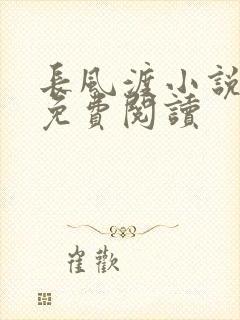 長風渡小說
免費閱讀
崔歡